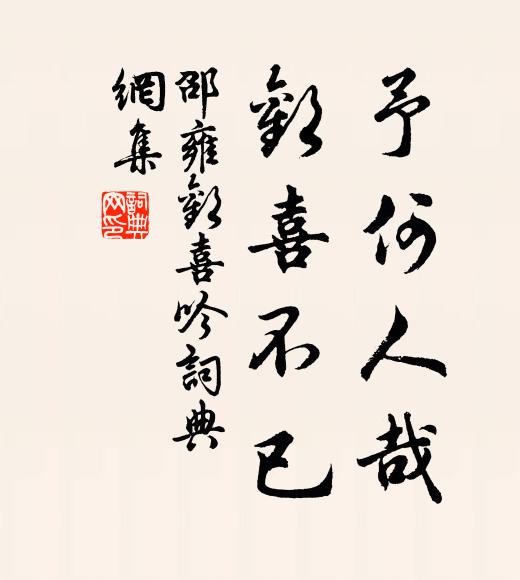 予何人哉
歡喜不已
邵雍歡喜吟詞典
網集
詞典
网印